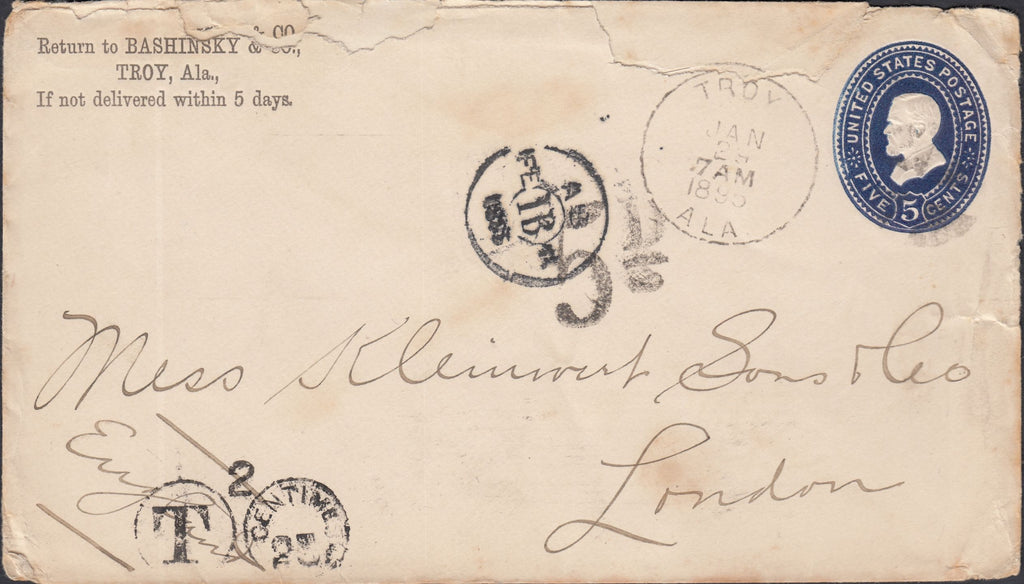 & CO
Return to BASHINSKY & CO.,
TROY, Ala.,
If not delivered within 5 days.
UNITED STATES POSTAGE
FIVE 5 CENTS
TROY
JAN
7 AM
1895
ALA
FE
IB
AB
D
5
Mess Kleinwort Sons & Co
London
England
2
T
CENTIMES
25